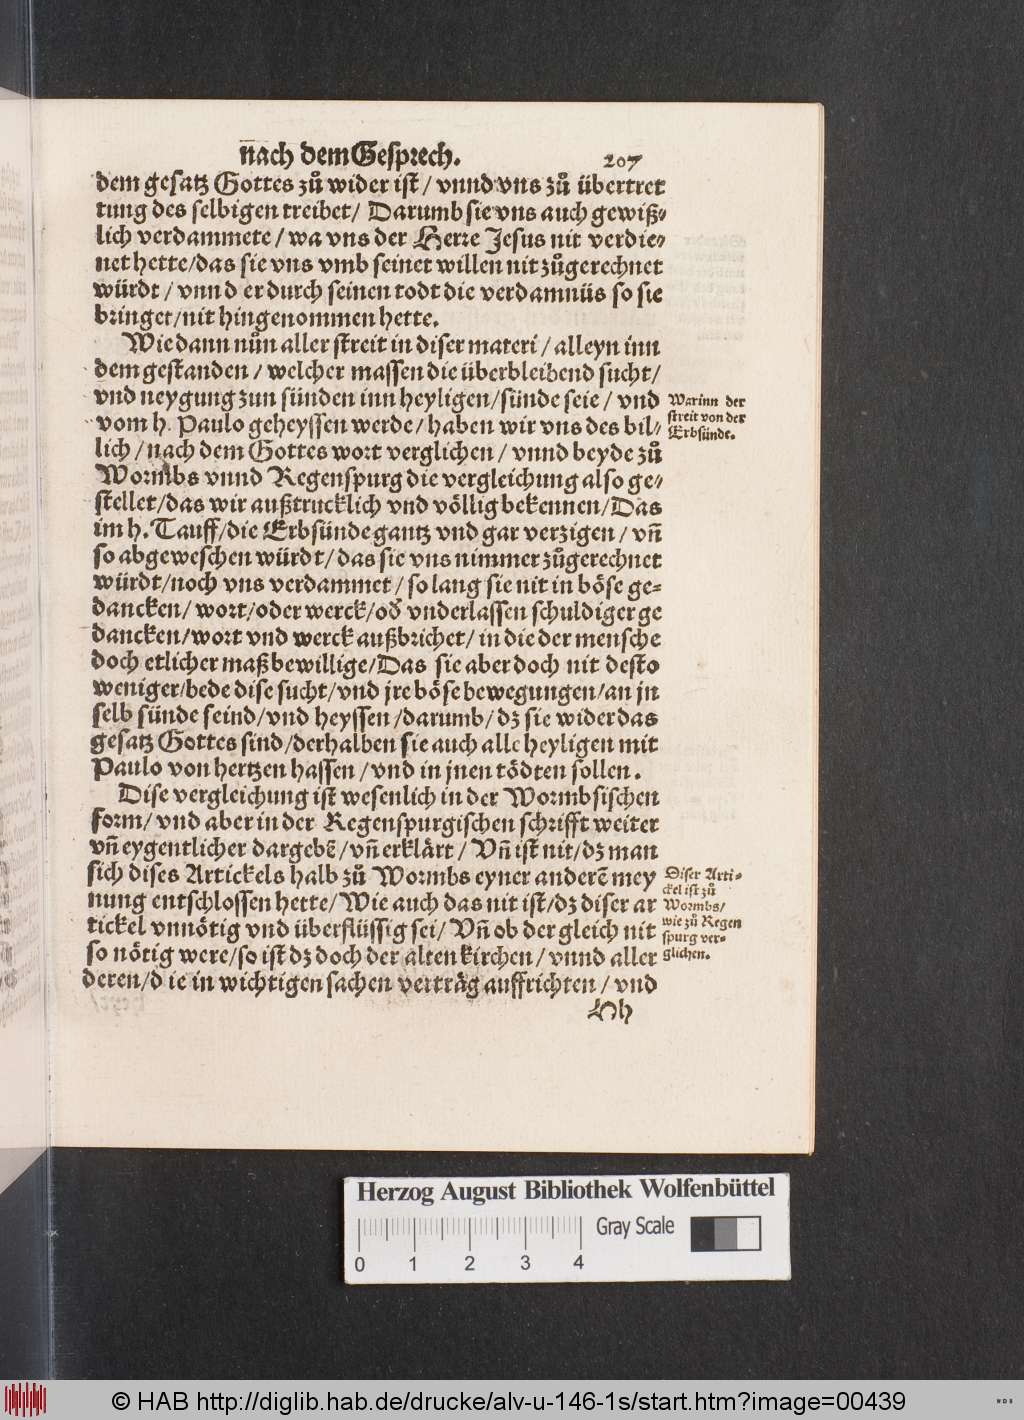 nach dem Gesprech. 207
dem gesatz Gottes zů wider ist / vnnd vns zů übertret
tung des selbigen treibet / Darumb sie vns auch gewiß⸗
lich verdammete / wa vns der Herre Jesus nit verdie⸗
net hette/das sie vns vmb seinet willen nit zůgerechnet
würdt / vnnd er durch seinen todt die verdamnüs so sie
bringet/nit hingenommen hette.
Wie dann nůn aller streit in diser materi / alleyn inn
dem gestanden / welcher massen die überbleibend sucht/
vnd neygung zun sünden inn heyligen/sünde seie / vnd
vom h. Paulo geheyssen werde / haben wir vns des bil⸗
lich / nach dem Gottes wort verglichen / vnnd beyde zů
Wormbs vnnd Regenspurg die vergleichung also ge⸗
stellet/das wir außtrucklich vnd völlig bekennen/Das
im h. Tauff/die Erbsünde gantz vnd gar verzigen / vn̄
so abgeweschen würdt/das sie vns nimmer zůgerechnet
würdt/noch vns verdammet / so lang sie nit in böse ge⸗
dancken/ wort/oder werck/od̓ vnderlassen schuldiger ge
dancken/wort vnd werck außbrichet/ in die der mensche
doch etlicher maß bewillige/Das sie aber doch nit desto
weniger/bede dise sucht/vnd jre böse bewegungen/an jn
selb sünde seind/vnd heyssen /darumb/ dz sie wider das
gesatz Gottes sind/derhalben sie auch alle heyligen mit
Paulo von hertzen hassen / vnd in jnen tödten sollen.
Dise vergleichung ist wesenlich in der Wormbsischen
form/ vnd aber in der Regenspurgischen schrifft weiter
vn̄ eygentlicher dargebē /vn̄ erklärt / Vn̄ ist nit/dz man
sich dises Artickels halb zů Wormbs eyner anderē mey
nung entschlossen hette/ Wie auch das nit ist/dz diser ar
tickel vnnötig vnd überflüssig sei/ Vn̄ ob der gleich nit
so nötig were/so ist dz doch der alten kirchen / vnnd aller
deren/d ie in wichtigen sachen verträg auffrichten / vnd
Hh
Warinn der
streit von der
Erbsünde.
Diser Arti⸗
ckel ist zů
Wormbs/
wie zů Regen
spurg ver⸗
glichen.
Herzog August Bibliothek Wolfenbüttel
Gray Scale
0 1 2 3 4
© HAB http://diglib.hab.de/drucke/alv-u-146-1s/start.htm?image=00439